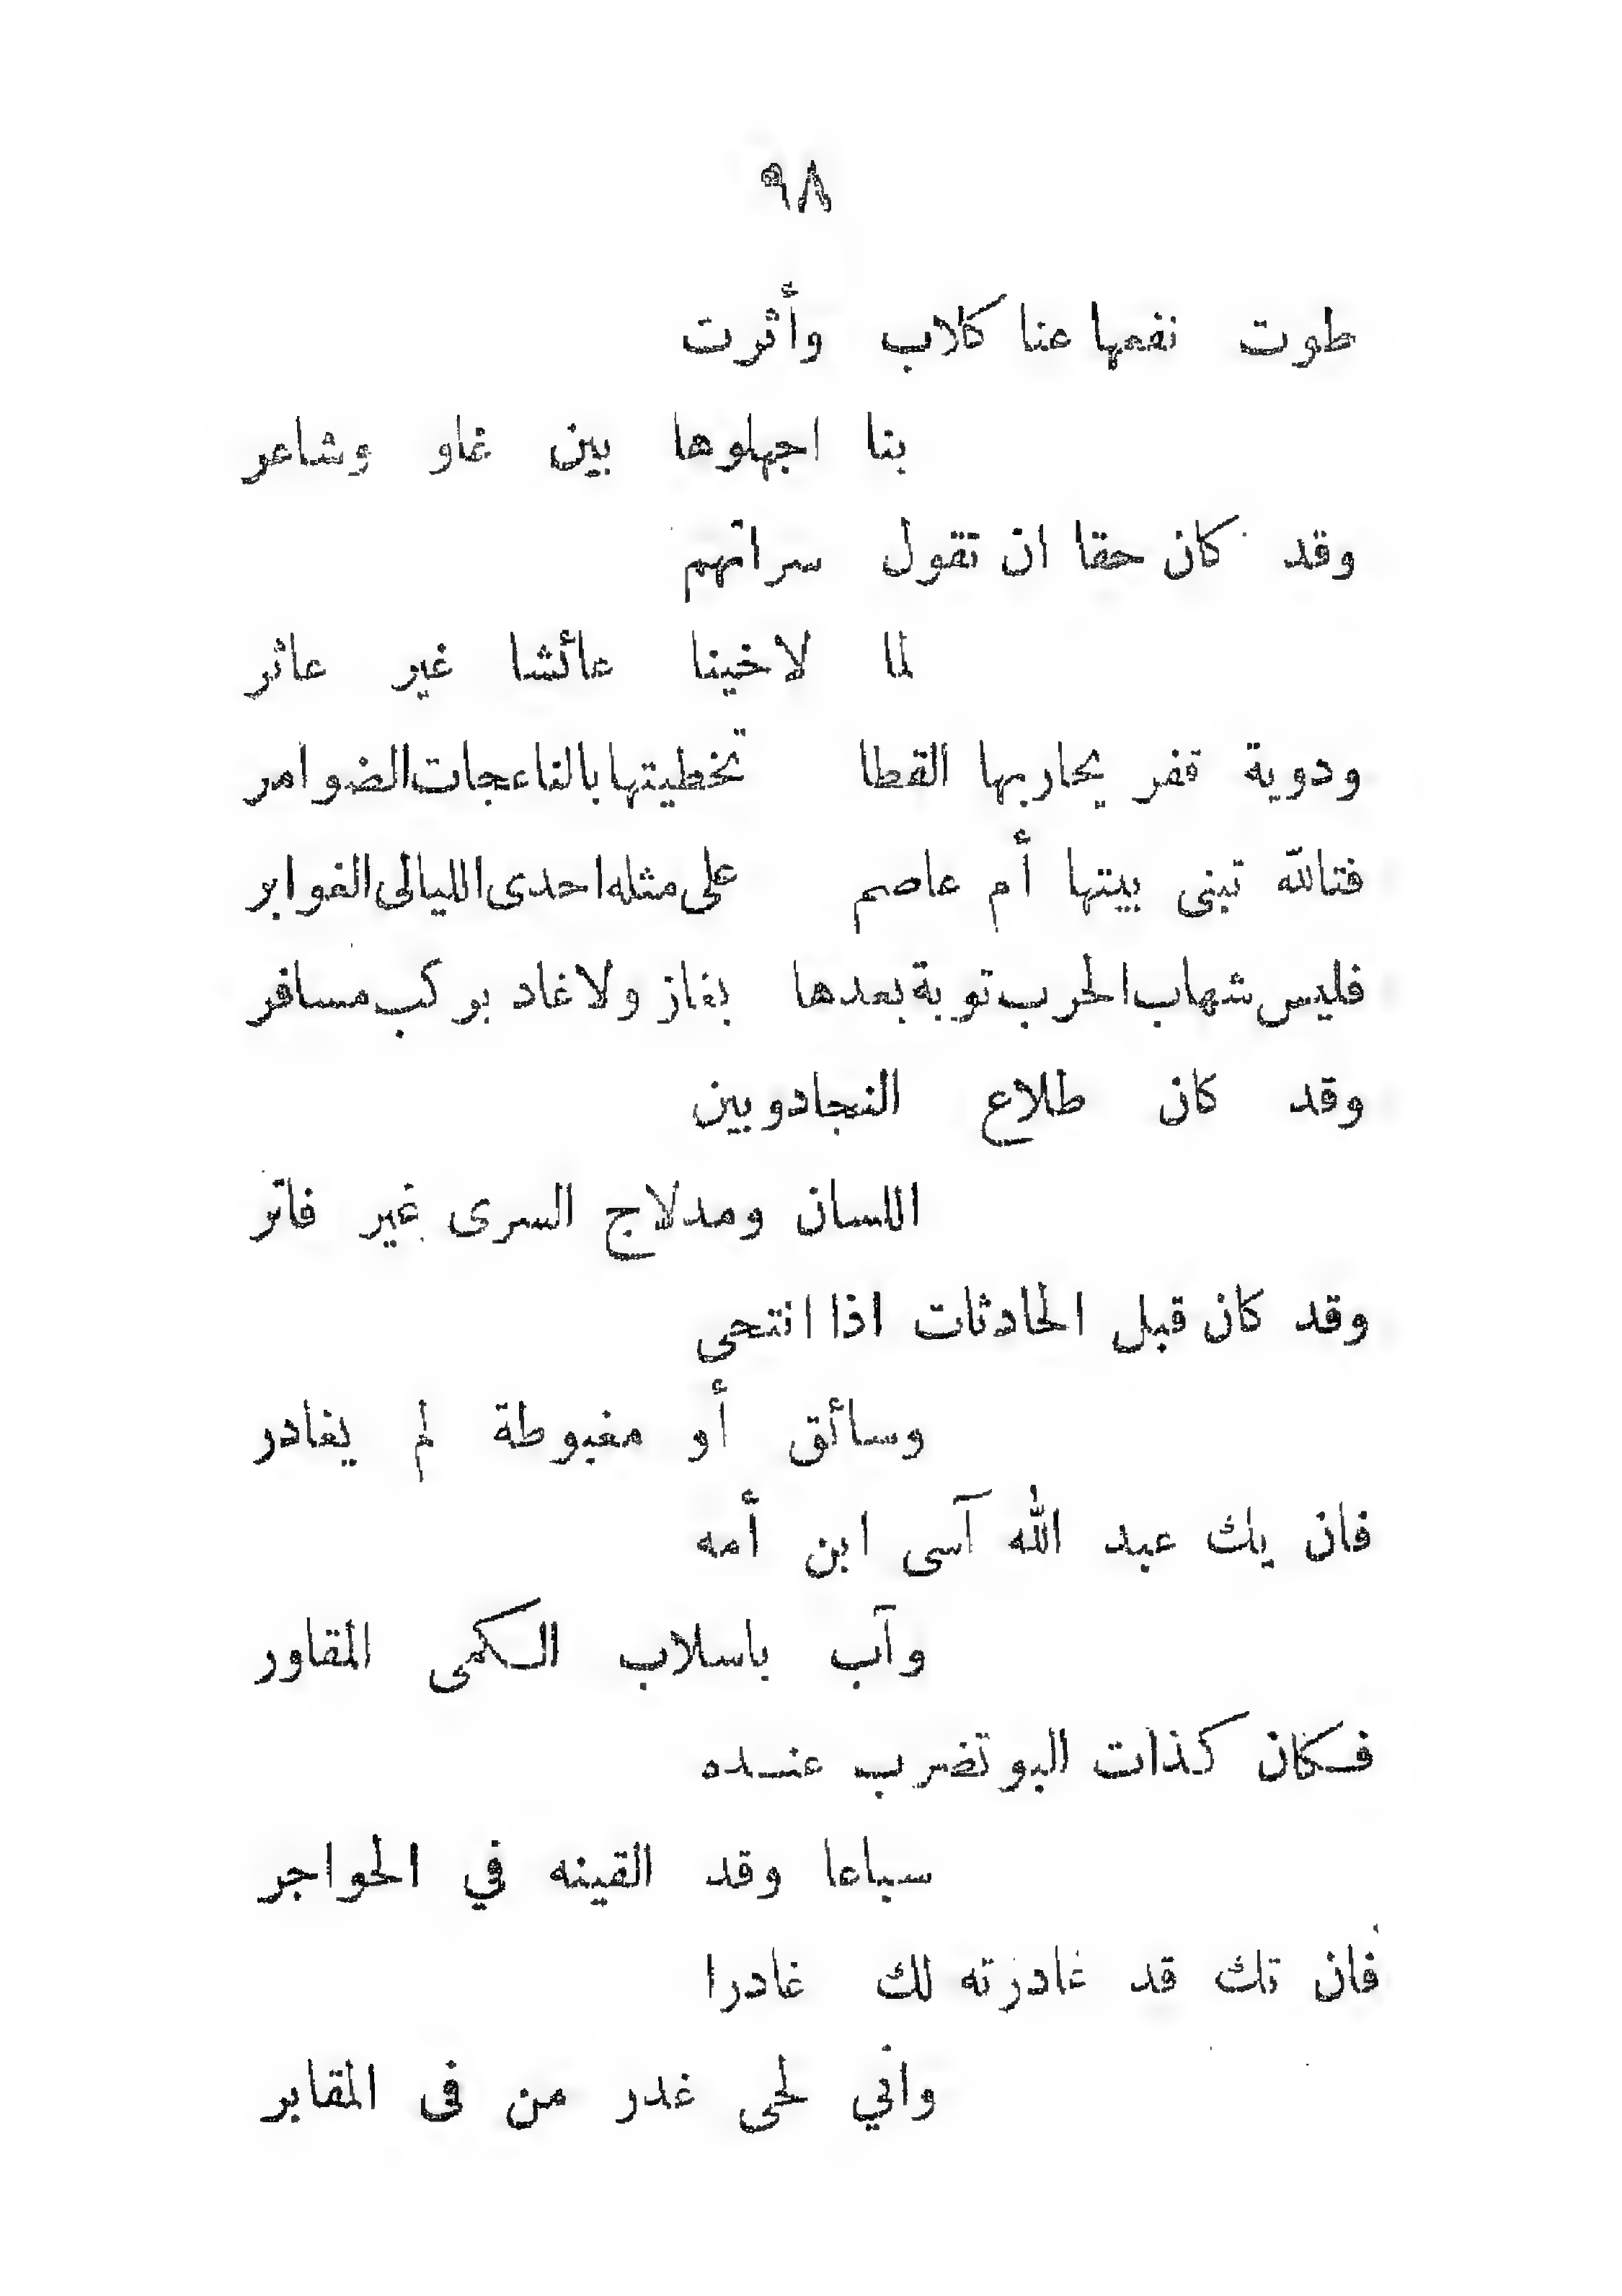 ٩٨
طوت نفعها عنا كلاب وأثرت
بنا اجهلوها بين غاو وشاعر
وقد كان حقا ان تقول سراتهم
لما لاخينا عائشا غير عاثر
ودوية قفر يحاربها القطا تخطيتها بالناعجات الضوامر
فتالله تبنى بيتها أم عاصم على مثله احدى الليالى الغوابر
فليس شهاب الحرب توبة بعدها بغاز ولا غاد بركب مسافر
وقد كان طلاع النجاد وبين
اللسان ومدلاج السرى غير فاتر
وقد كان قبل الحادثات اذا انتحى
وسائق أو مغبوطة لم يغادر
فان يك عبد الله آسى ابن أمه
وآب باسلاب الكمى المقاور
فكان كذات البو تضرب عنده
سباعا وقد القينه في الحواجر
فان تك قد غادرته لك غادرا
واني لحى غدر من فى المقابر